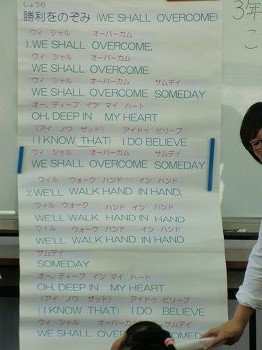 しょうり
勝利をのぞみ (WE SHALL OVERCOME)
ウィ シャル オーバーカム
1.WE SHALL OVERCOME.
ウィ シャル オーバーカム
WE SHALL OVERCOME
ウィ シャル オーバーカム サムデイ
WE SHALL OVERCOME SOMEDAY
オー、ディープ イン マイ ハート
OH, DEEP IN MY HEART
(アイ ノウ ザット) アイドゥ ビリーブ
(I KNOW THAT) I DO BELIEVE
ウィ シャル オーバーカム サムデイ
WE SHALL OVERCOME SOMEDAY
ウィル ウォーク ハンド イン ハンド
2.WE'LL WALK HAND IN HAND.
ウィル ウォーク ハンド イン ハンド
WE'LL WALK HAND IN HAND
ウィル ウォーク ハンド イン ハンド
WE'LL WALK HAND IN HAND
サムデイ
SOMEDAY
オー、ディープ イン マイ ハート
OH, DEEP IN MY HEART
(アイ ノウ ザット) アイドゥ ビリーブ
(I KNOW THAT) I DO BELIEVE
ウィ シャル オーバーカム サムデイ
WE SHALL OVERCOME SOMEDAY
3年
こ